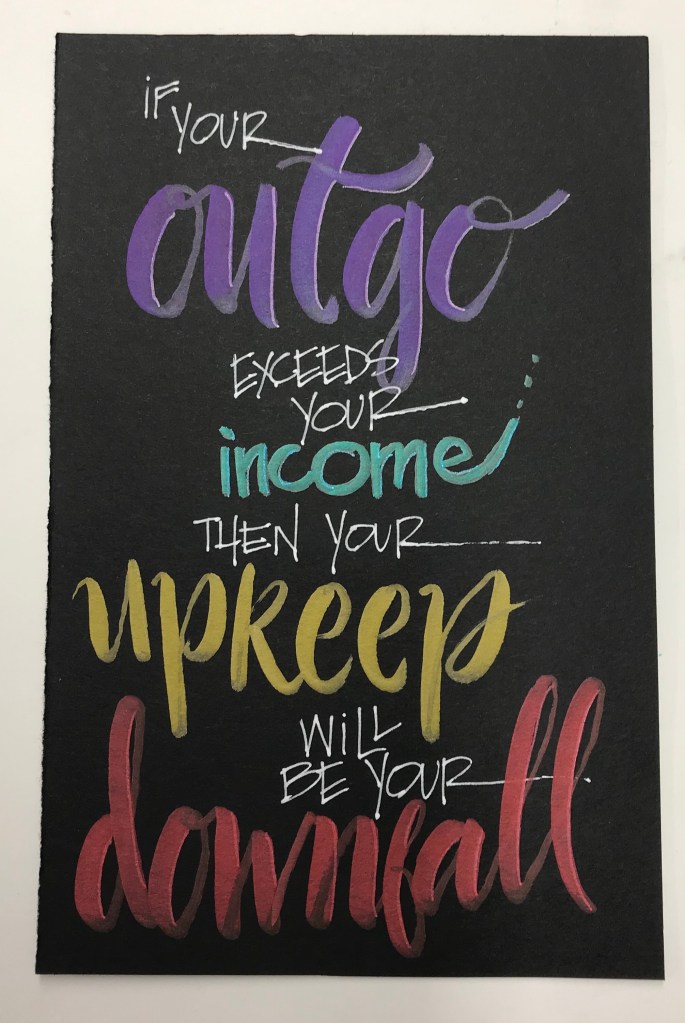 iF
YOUR
outgo
EXCEEDS
YOUR
income
THEN YOUR
upkeep
WiLL
BE YOUR
downfall